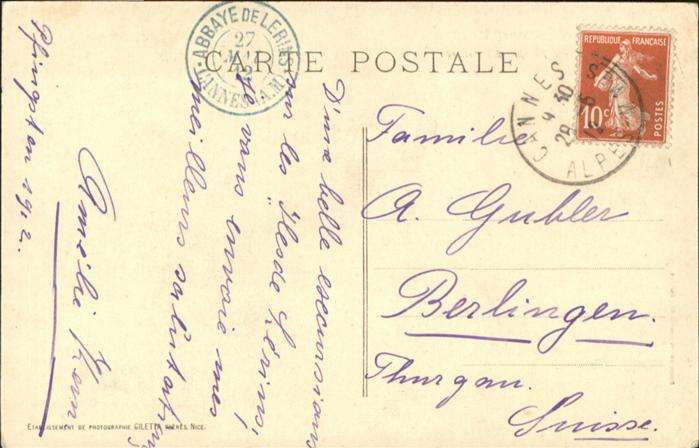 CARTE POSTALE
ABBAYE DE LERINS
27
CANNES (A.M.)
REPUBLIQUE FRANÇAISE
10c
POSTES
CANNES
9 30
28 -5
12
ALPES
Pfingsten 1912.
D'une belle excursion
sur les Îles de Lérins,
je vous envoie mes
meilleurs salutations
Amélie
Familie
A. Gubler
Berlingen.
Thurgau.
Suisse.
ETABLISSEMENT DE PHOTOGRAPHIE GILETTA FRÈRES, NICE.